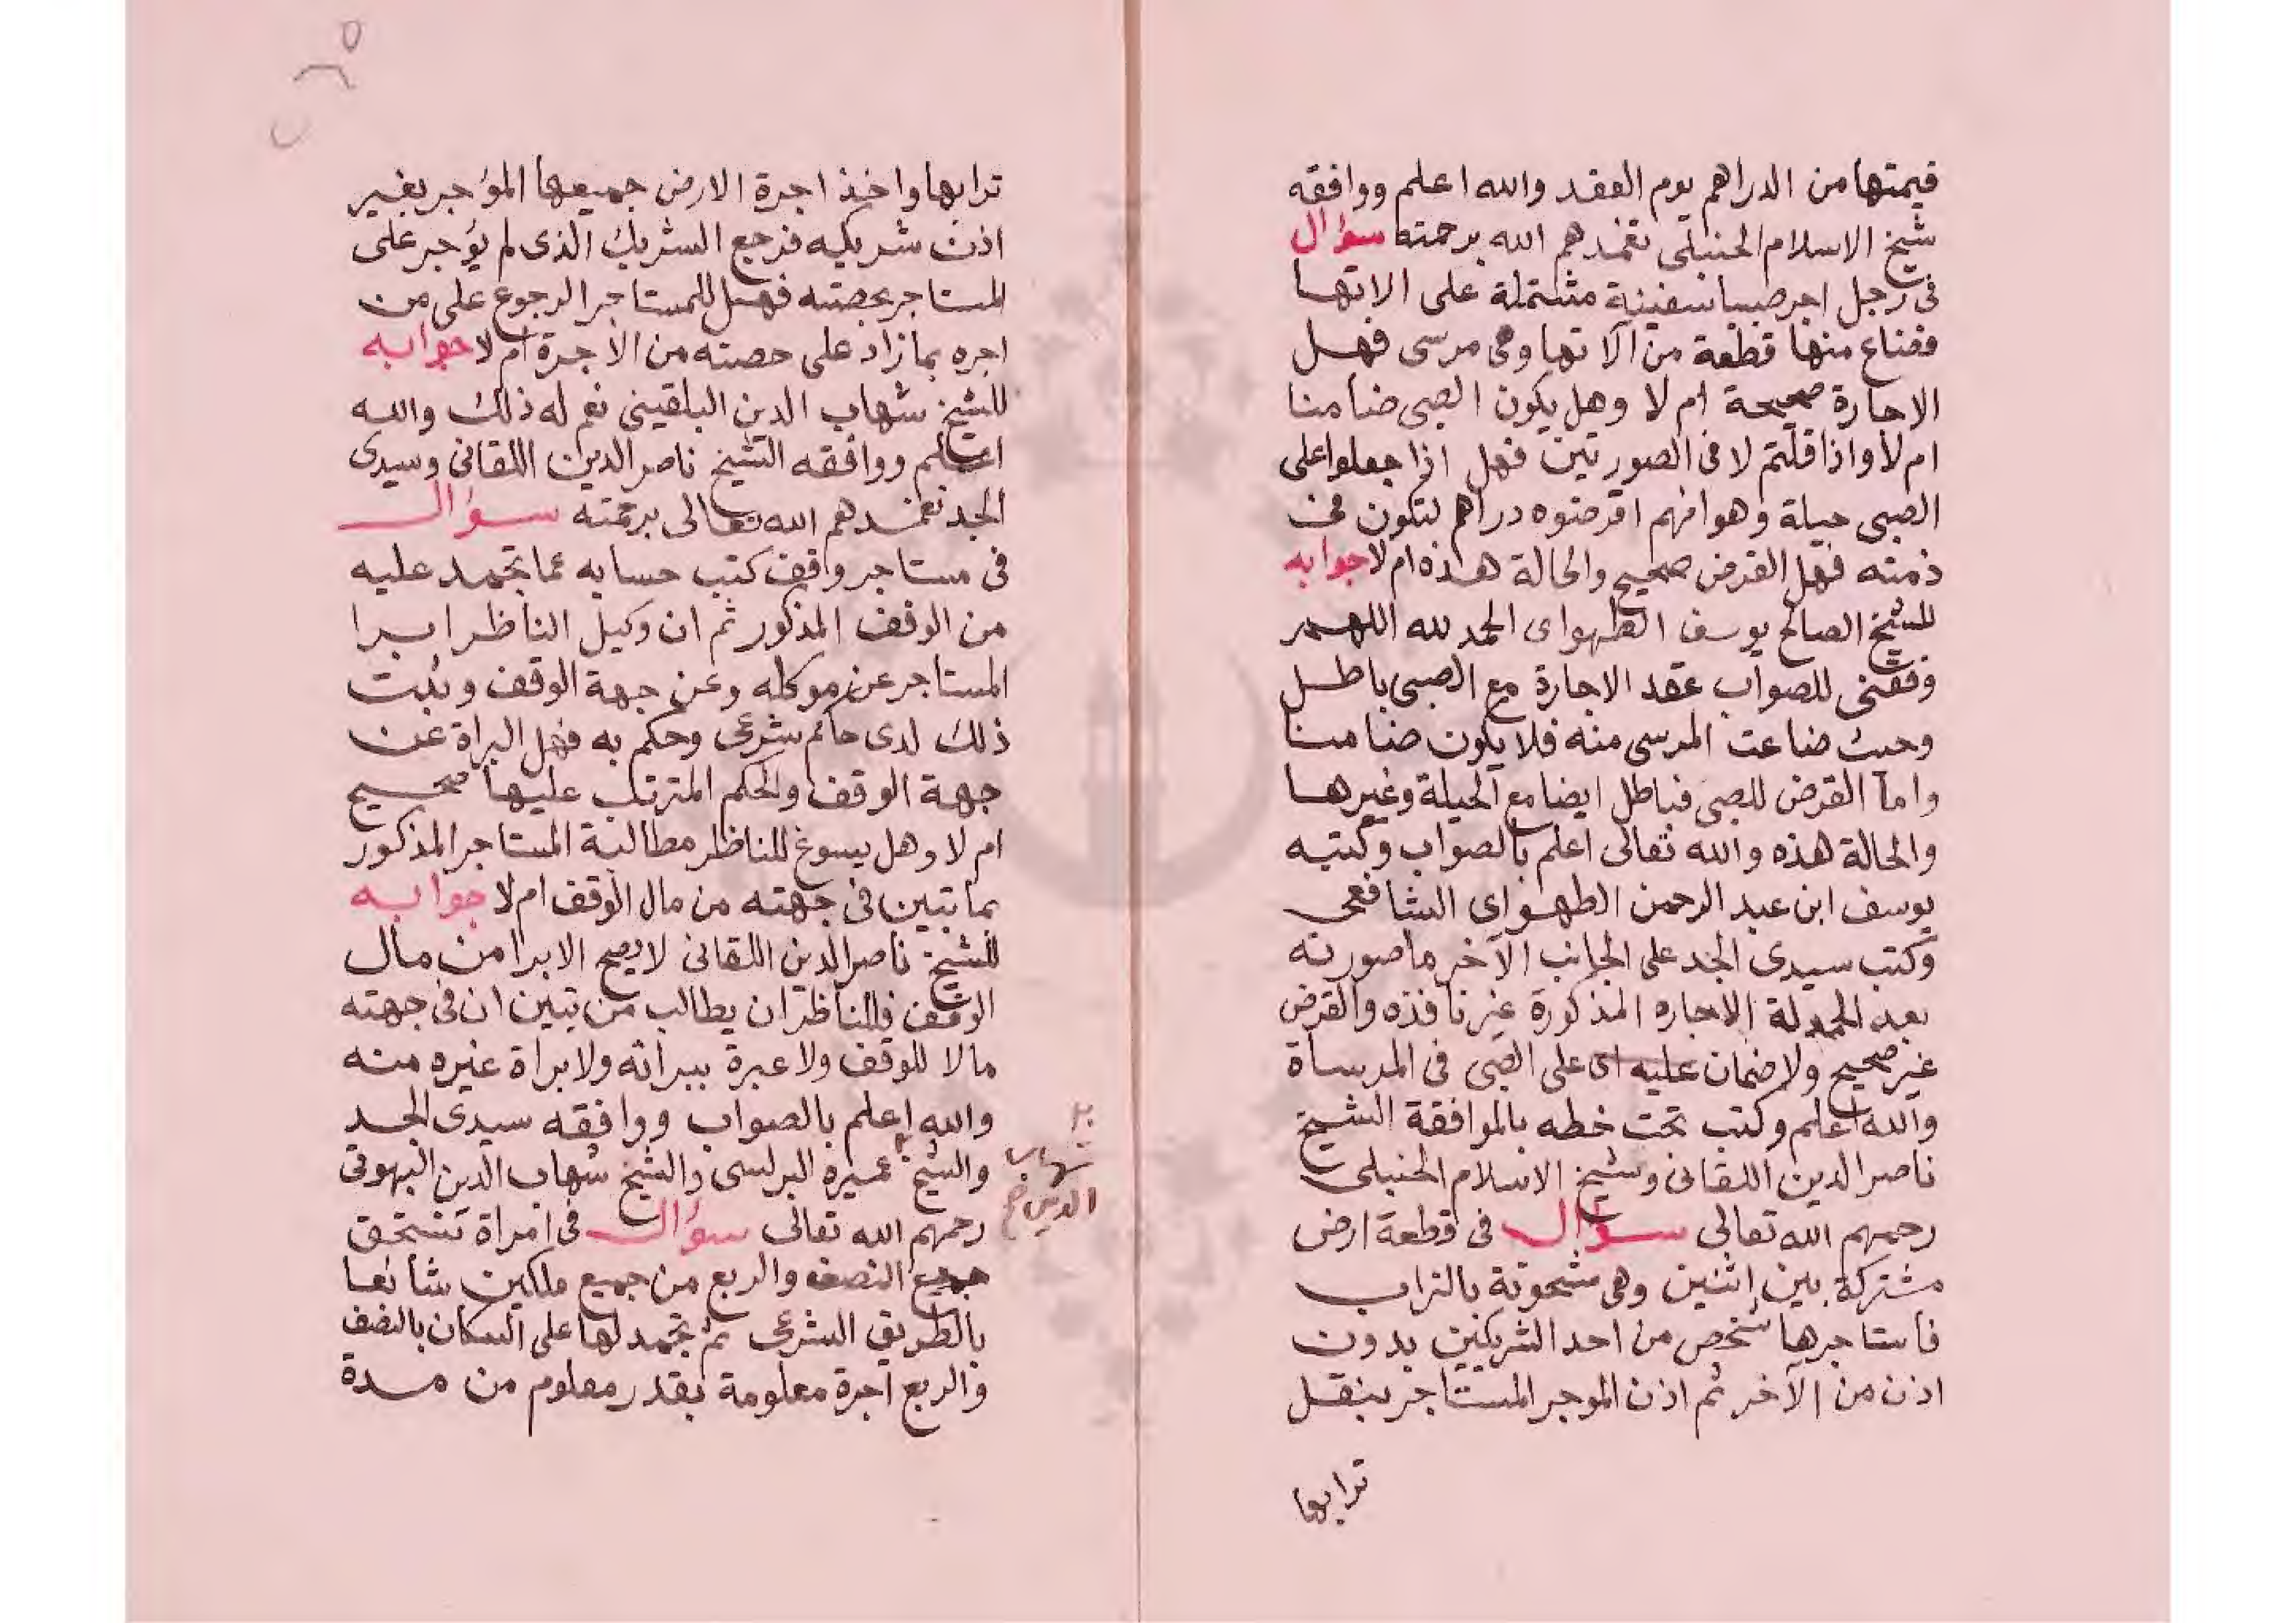 قيمتها من الدراهم يوم العقد والله اعلم ووافقه
شيخ الاسلام الحنبلى تغمدهم الله برحمته سؤال
فى رجل اجر صبيا سفينة مشتملة على الاتها
فضاع منها قطعة من آلاتها وهى مرسى فهل
الاجارة صحيحة ام لا وهل يكون الصبى ضامنا
ام لا واذا قلتم لا فى الصورتين فهل اذا جعلوا على
الصبى حيلة وهو انهم اقرضوه دراهم لتكون فى
ذمته فهل القرض صحيح والحالة هذه ام لا جوابه
للشيخ الصالح يوسف الطهواى الحمد لله اللهم
وفقنى للصواب عقد الاجارة مع الصبى باطل
وحيث ضاعت المرسى منه فلا يكون ضامنا
واما القرض للصبى فباطل ايضا مع الحيلة وغيرها
والحالة هذه والله تعالى اعلم بالصواب وكتبه
يوسف ابن عبد الرحمن الطهواى الشافعى
وكتب سيدى الجد على الجانب الآخر ما صورته
بعد الحمدلة الاجاره المذكورة غير نافذه والقرض
غير صحيح ولا ضمان عليه اى على الصبى فى المرساة
والله اعلم وكتب تحت خطه بالموافقة الشيخ
ناصر الدين اللقانى وشيخ الاسلام الحنبلى
رحمهم الله تعالى سؤال فى قطعة ارض
مشتركة بين اثنين وهى مشحونة بالتراب
فاستاجرها شخص من احد الشريكين بدون
اذن من الآخر ثم اذن الموجر المستاجر بنقل
ترابها
ترابها واخذ اجرة الارض جميعها المؤجر بغير
اذن شريكه فرجع الشريك الذى لم يؤجر على
المستاجر بحصته فهل للمستاجر الرجوع على من
اجره بما زاد على حصته من الاجرة ام لا جوابه
للشيخ شهاب الدين البلقينى نعم له ذلك والله
اعلم ووافقه الشيخ ناصر الدين اللقانى وسيدى
الجد تغمدهم الله تعالى برحمته سؤال
فى مستاجر وقف كتب حسابه عما تجمد عليه
من الوقف المذكور ثم ان وكيل الناظر ابرا
المستاجر عن موكله وعن جهة الوقف وثبت
ذلك لدى حاكم شرعى وحكم به فهل البراة عن
جهة الوقف والحكم المترتب عليها صحيح
ام لا وهل يسوغ للناظر مطالبة المستاجر المذكور
بما تبين فى جهته من مال الوقف ام لا جوابه
للشيخ ناصر الدين اللقانى لا يصح الابرا من مال
الوقف فللناظر ان يطالب من تبين ان فى جهته
مالا للوقف ولا عبرة ببراته ولا براة غيره منه
والله اعلم بالصواب ووافقه سيدى الجد
والشيخ عميره البرلسى والشيخ شهاب الدين البهوتى
شهاب
الدين
رحمهم الله تعالى سؤال فى امراة تستحق
جميع النصف والربع من جميع ملكين شائعا
بالطريق الشرعى ثم تجمد لها على السكان بالنصف
والربع اجرة معلومة بقدر معلوم من مدة